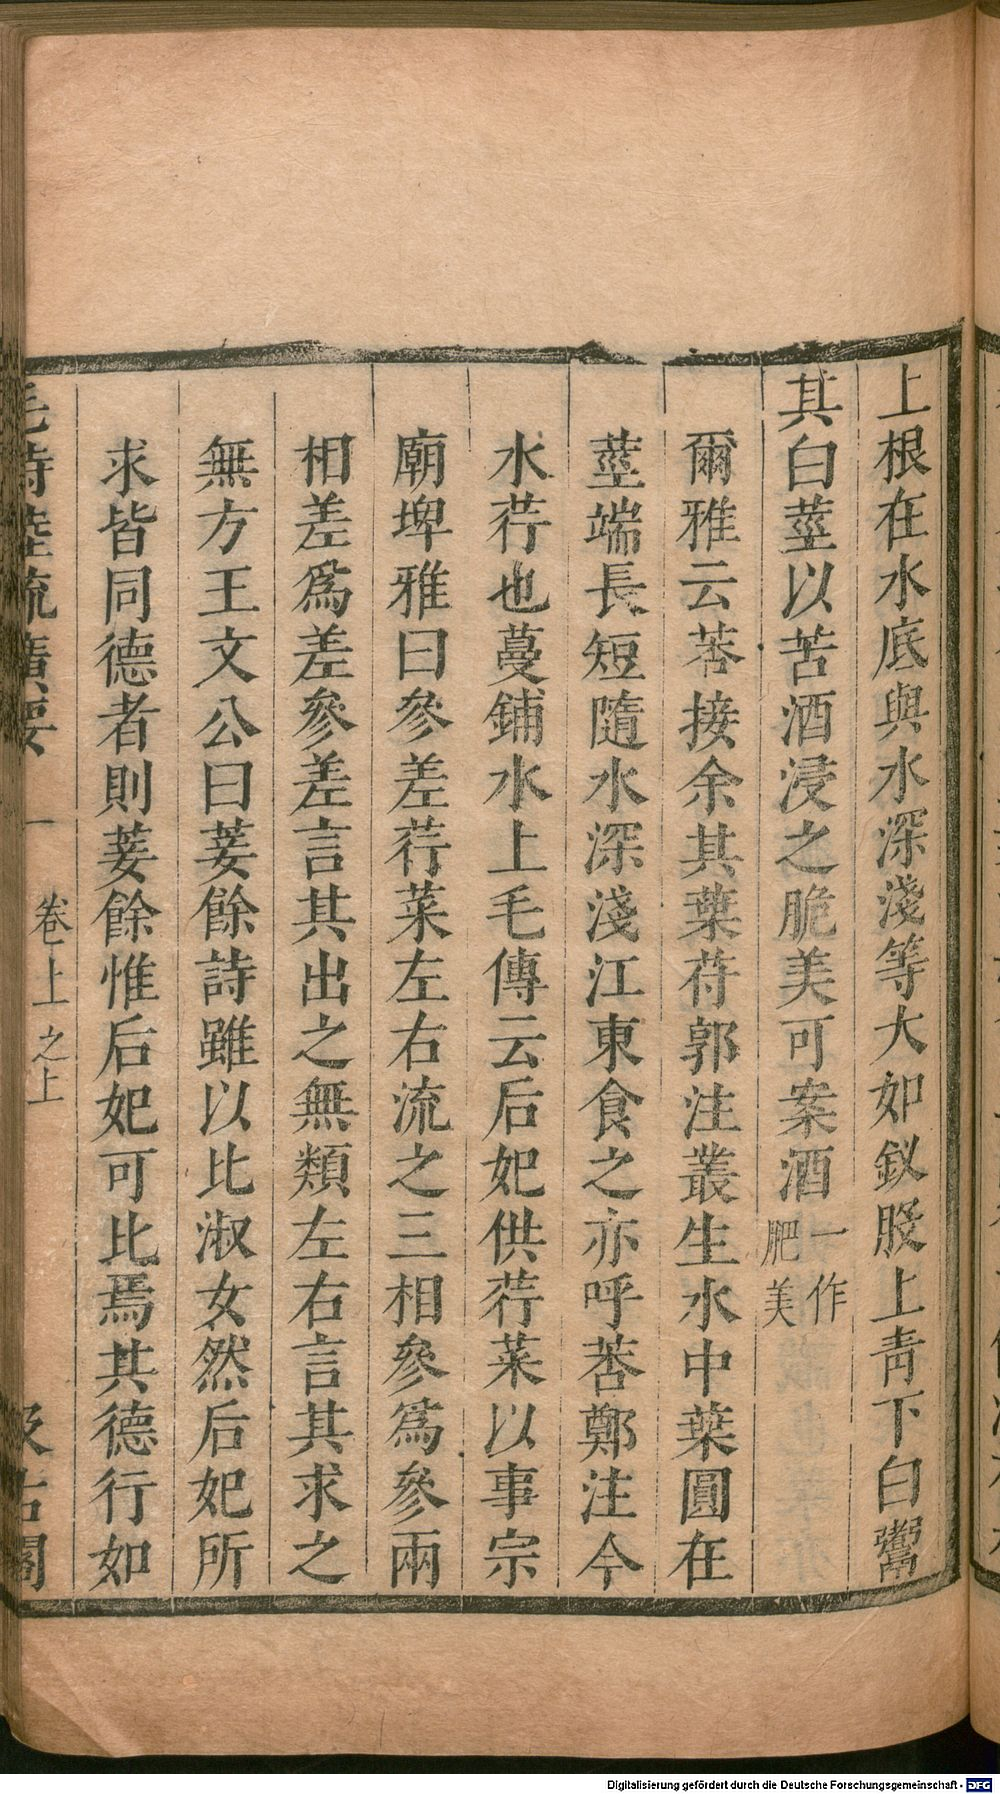 上根在水底與水深淺等大如釵股上靑下白鬻
其白莖以苦酒浸之脆美可案酒一作肥美
爾雅云莕接余其葉苻郭注叢生水中葉圓在
莖端長短隨水深淺江東食之亦呼莕鄭注今
水荇也蔓鋪水上毛傳云后妃供荇菜以事宗
廟埤雅曰參差荇菜左右流之三相參爲參兩
相差爲差參差言其出之無類左右言其求之
無方王文公曰萋餘詩雖以比淑女然后妃所
求皆同德者則萋餘惟后妃可比焉其德行如
毛詩陸疏廣要
卷上之上
汲古閣
Digitalisierung gefördert durch die Deutsche Forschungsgemeinschaft - DFG